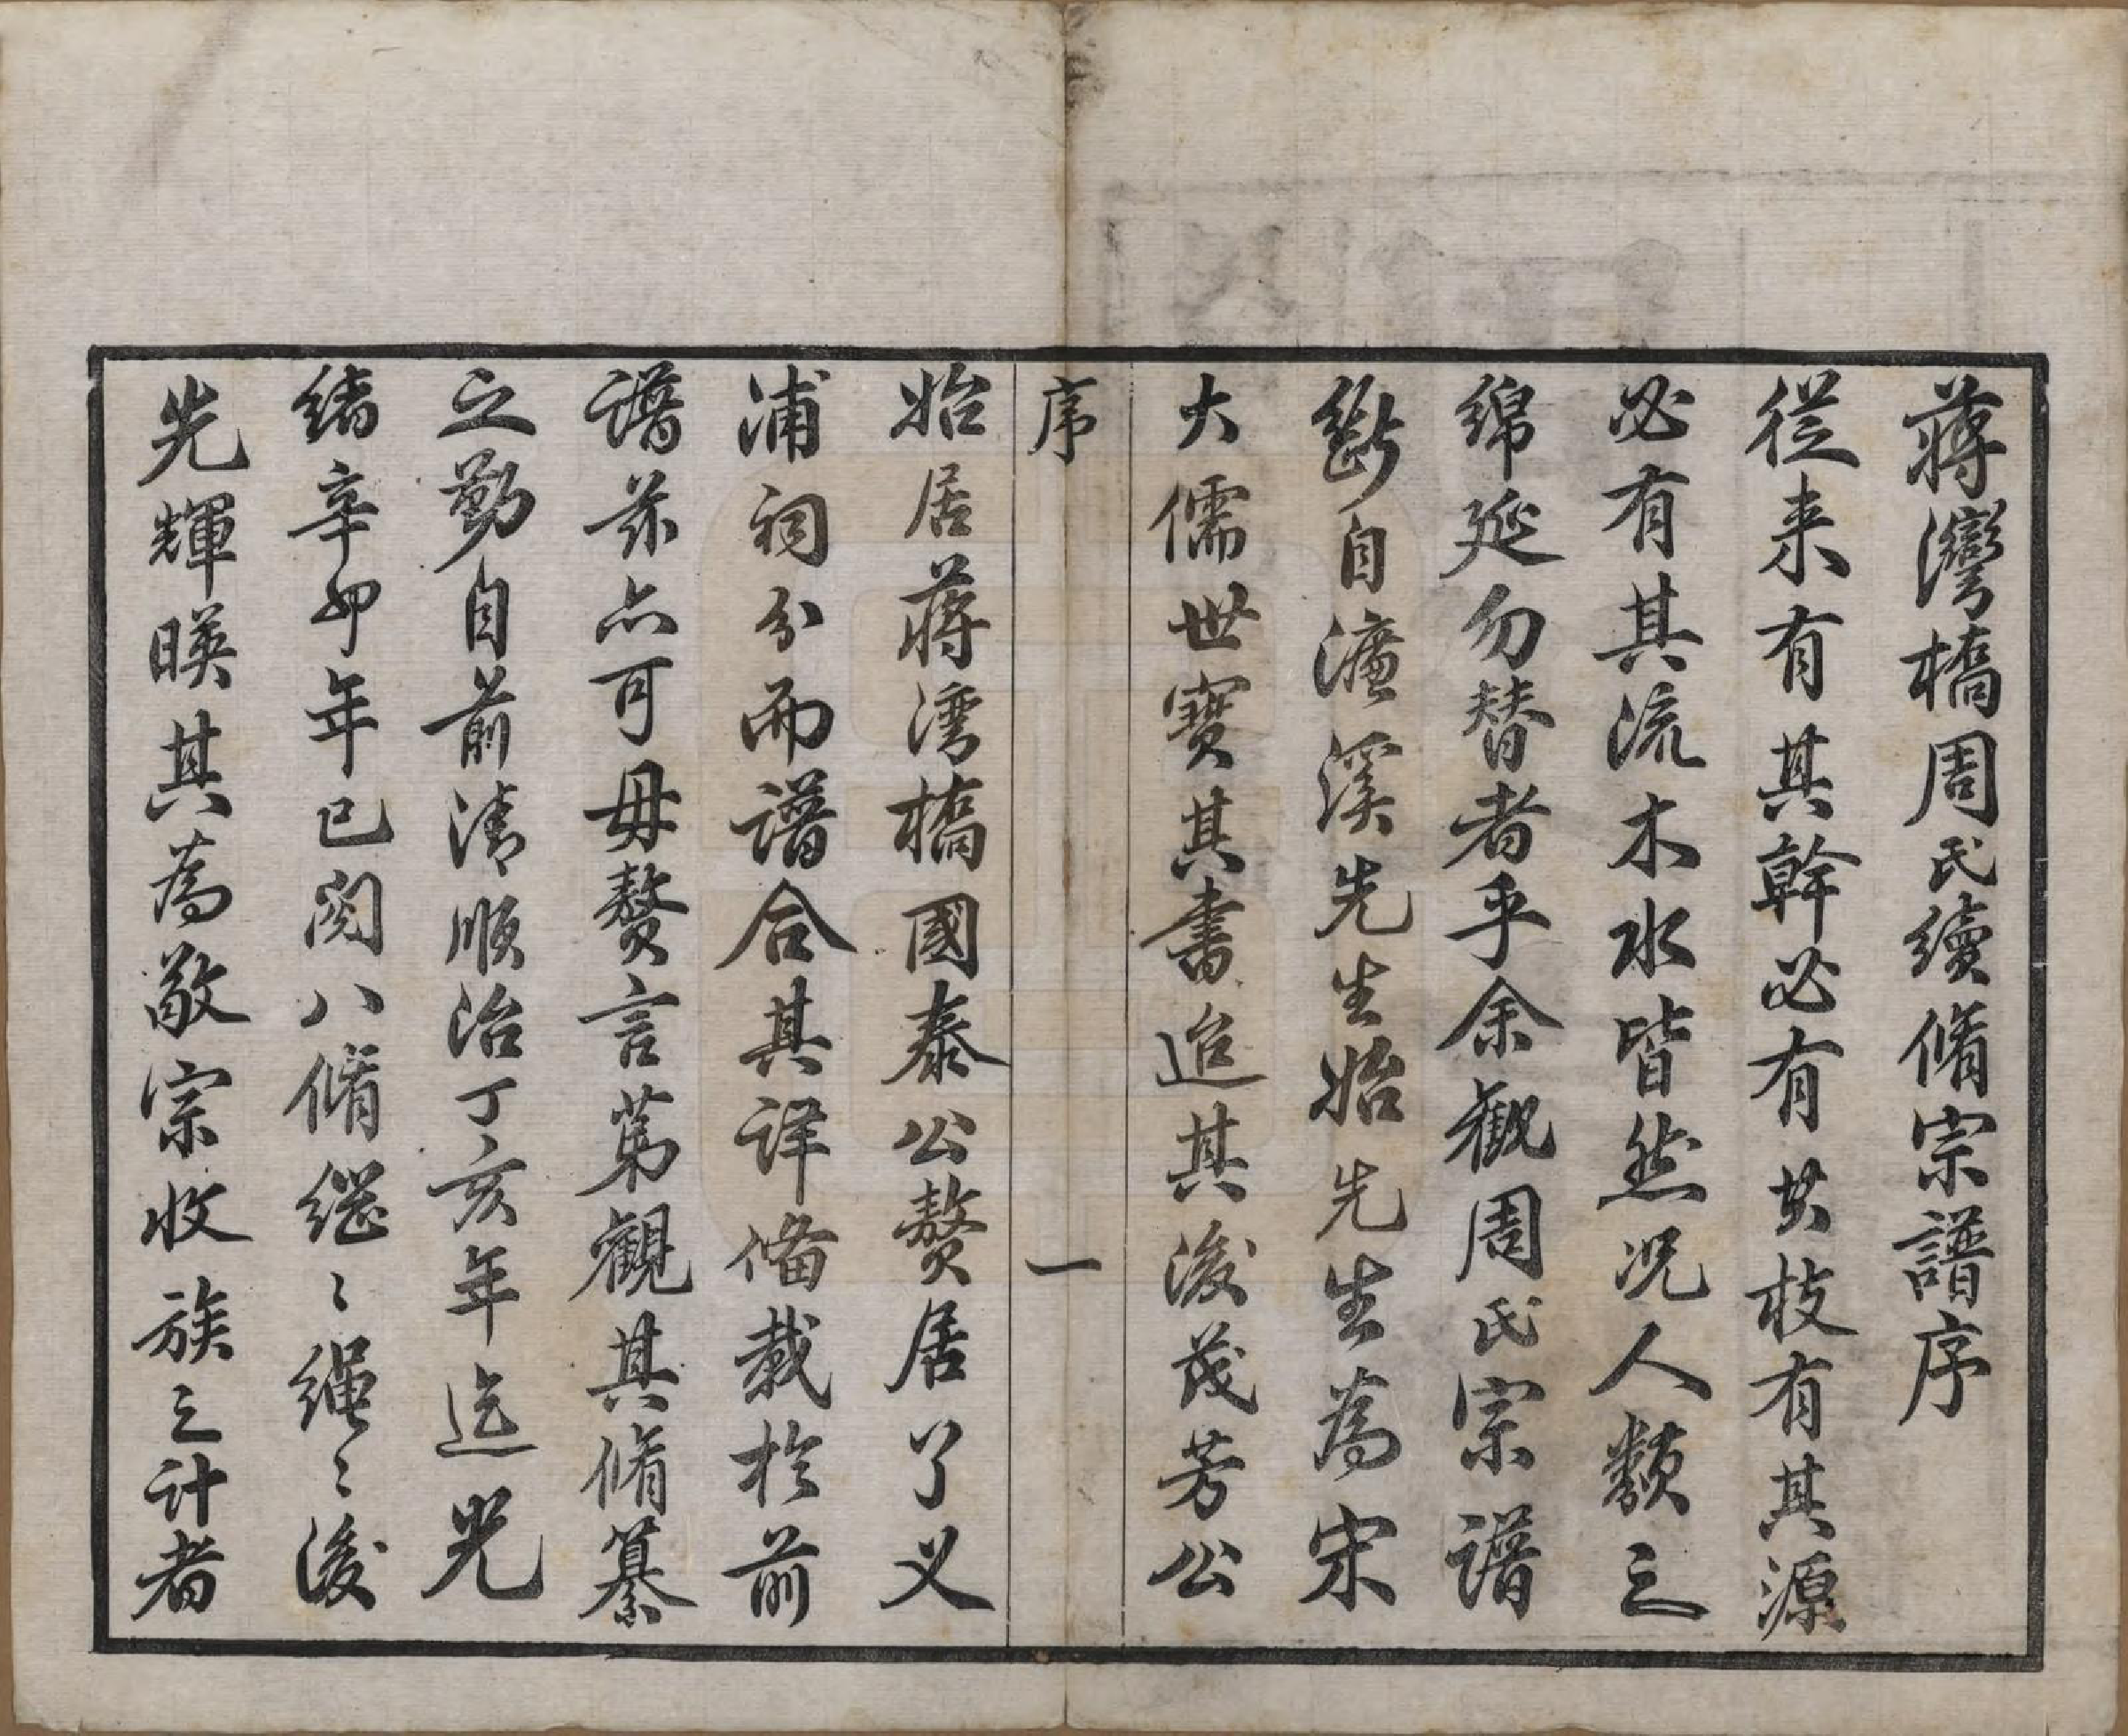 蔣灣橋周氏續脩宗譜序
從来有其幹必有其枝有其源
必有其流木水皆然况人類之
綿延勿替者乎余觀周氏宗譜
斷自濂溪先生始先生為宋
大儒世寶其書迨其後茂芳公
序 一
始居蔣湾橋國泰公贅居丫义
浦祠分而譜合其详俻載於前
譜茲亦可毋贅言苐觀其脩纂
之勤自前清順治丁亥年迄光
緒辛卯年已閱八脩继〻繩〻後
先輝暎其為敬宗收族之計者